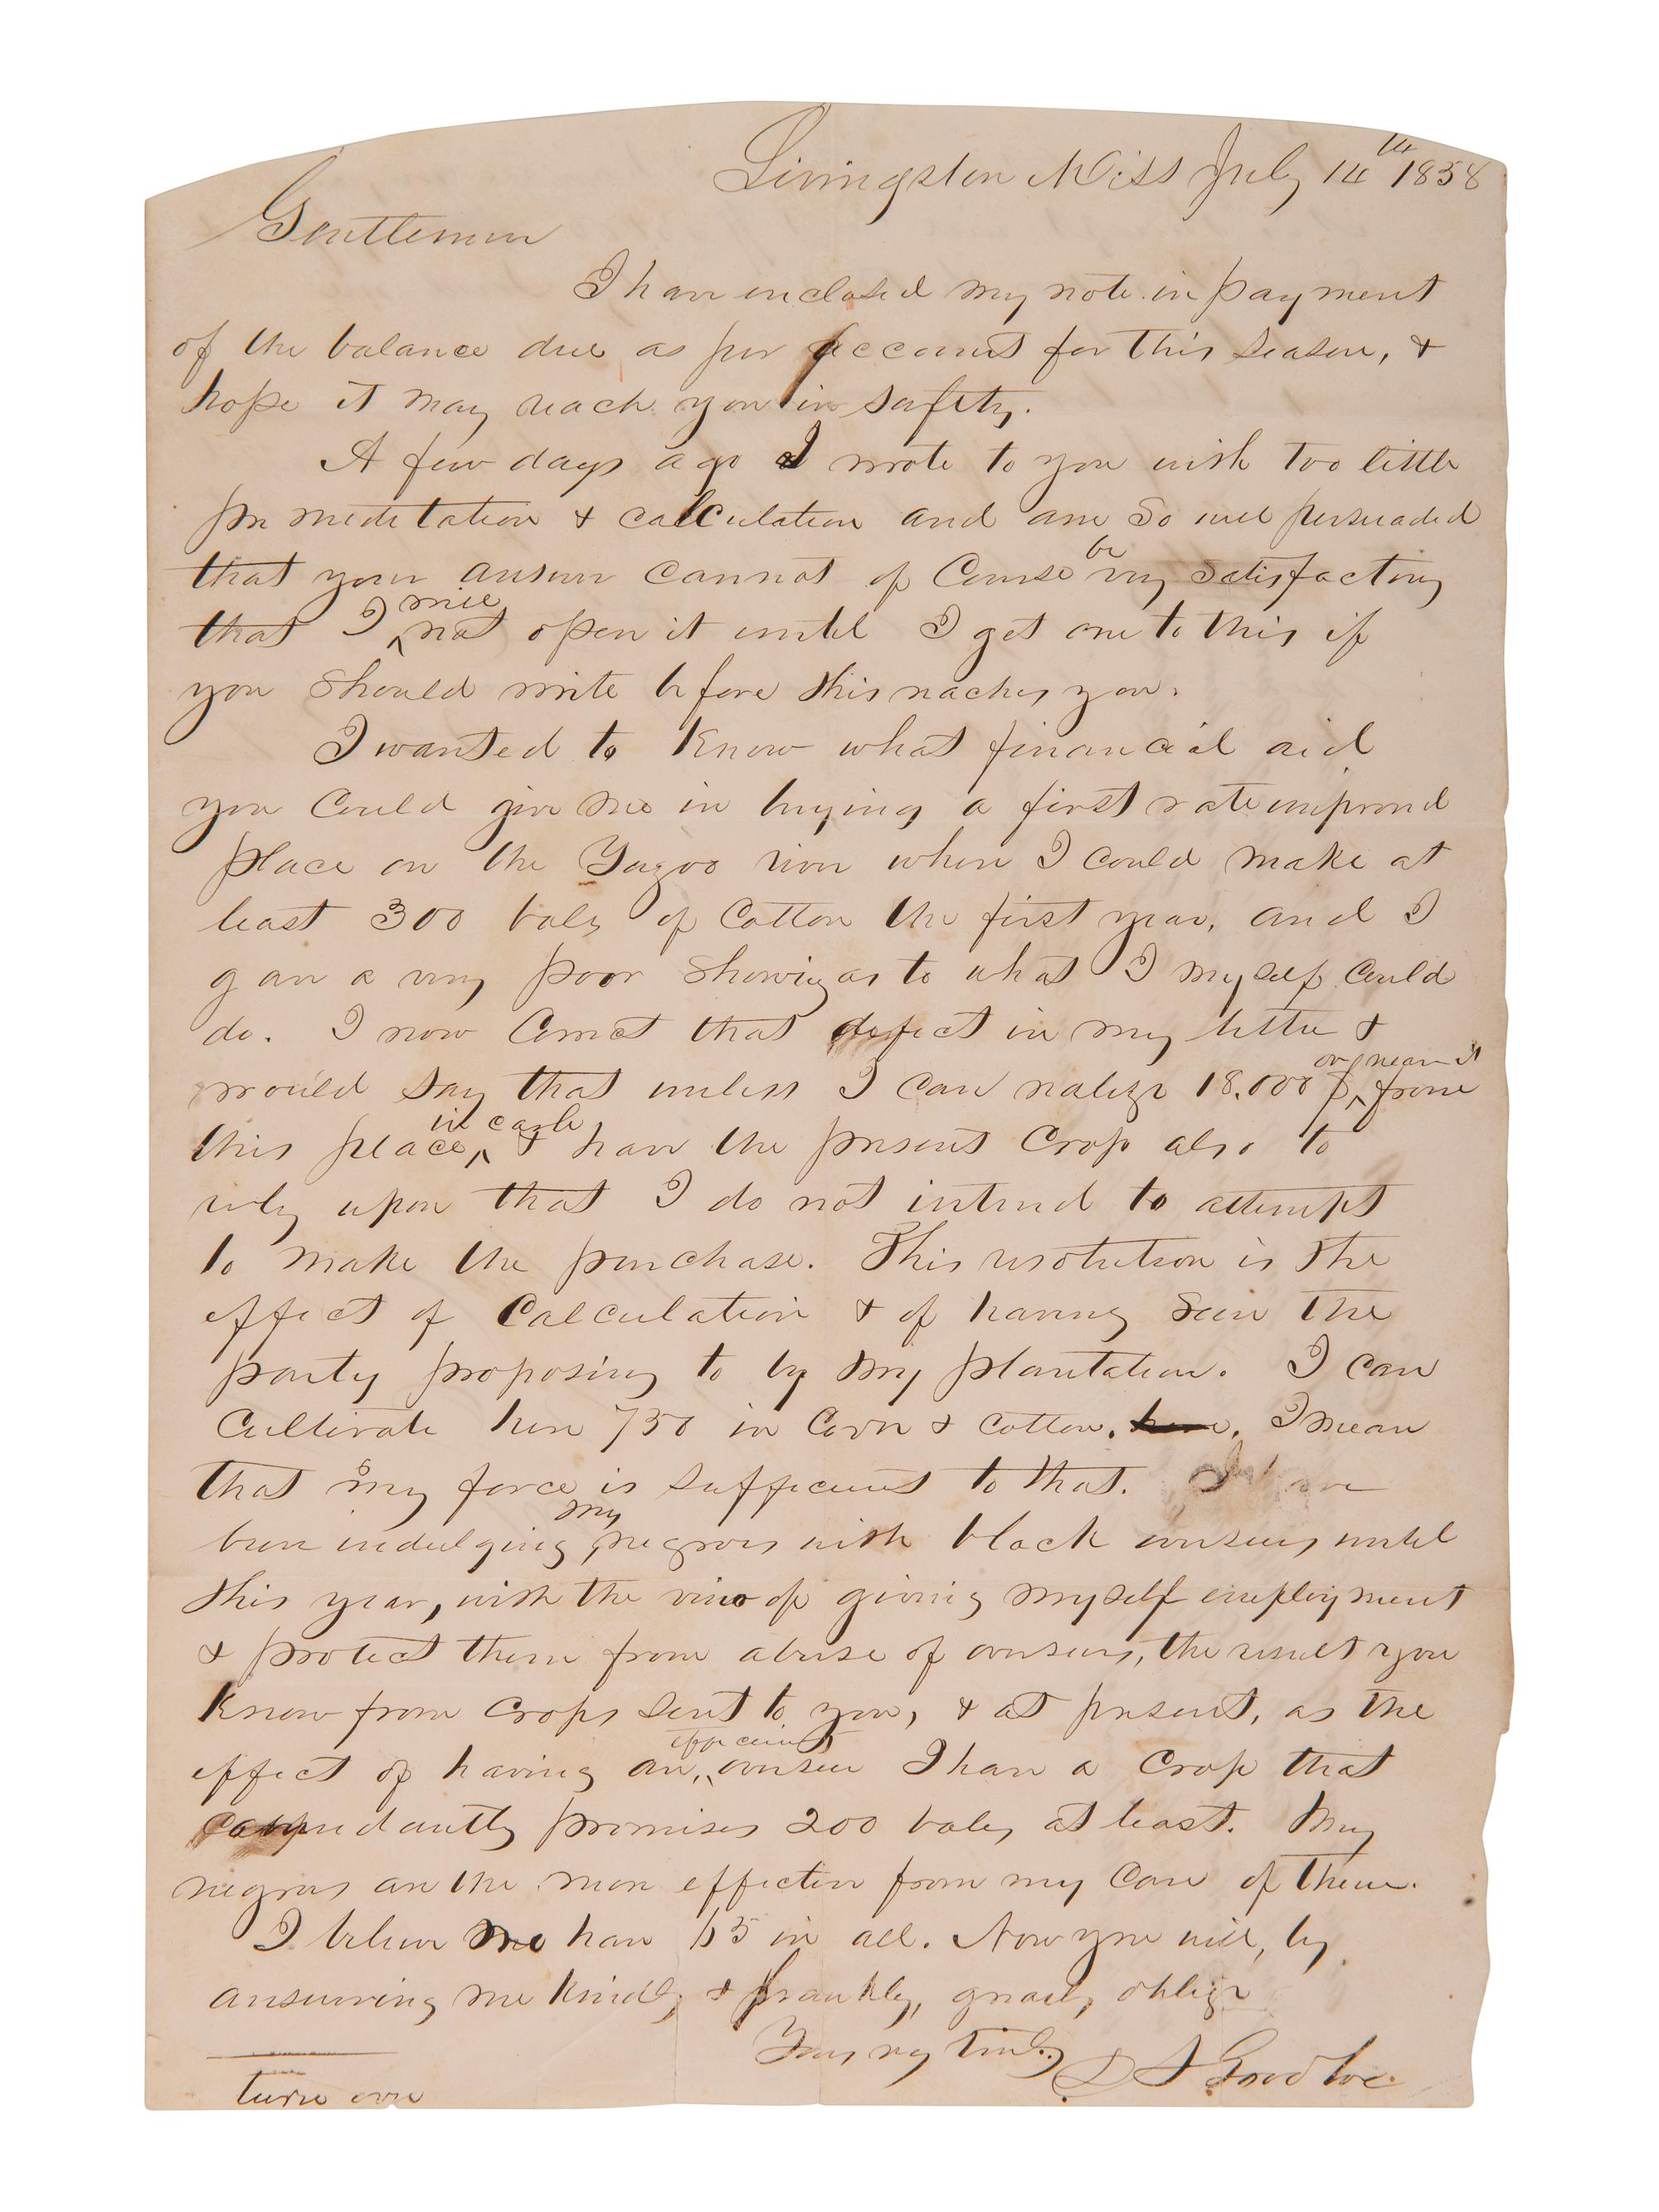 Livingston Miss July 14th 1858
Gentlemen
I have enclosed my note in payment
of the balance due as per account for this season, &
hope it may reach you in safety.
A few days ago I wrote to you with too little
premeditation & calculation and am so well persuaded
that your answer cannot of Course be very satisfactory
that I will not open it until I get one to this if
you should write before this reaches you.
I wanted to Know what financial aid
you Could give me in buying a first rate improved
place on the Yazoo river where I could make at
least 300 bales of Cotton the first year, and I
gave a very poor showing as to what I myself Could
do. I now Correct that defect in my letter &
would say that unless I can realize 18.000 $ or near it from
this place, in cash & have the present Crop also to
rely upon that I do not intend to attempt
to make the purchase. This resolution is the
effect of Calculation & of having seen the
party proposing to by my plantation. I can
Cultivate here 750 in Corn & cotton. I mean
that my force is sufficient to that. I have
been indulging my negroes with black overseers until
this year, with the view of giving myself employment
& protect them from abuse of overseers, the result you
Know from crops sent to you, & at present, as the
effect of having an, efficient overseer I have a Crop that
abundantly promises 200 bales at least. My
negroes are the more effective from my Care of them.
I believe we have 65 in all. Now you will, by
answering me kindly & frankly, greatly oblige
Yours very truly
D S Goodloe
turn over